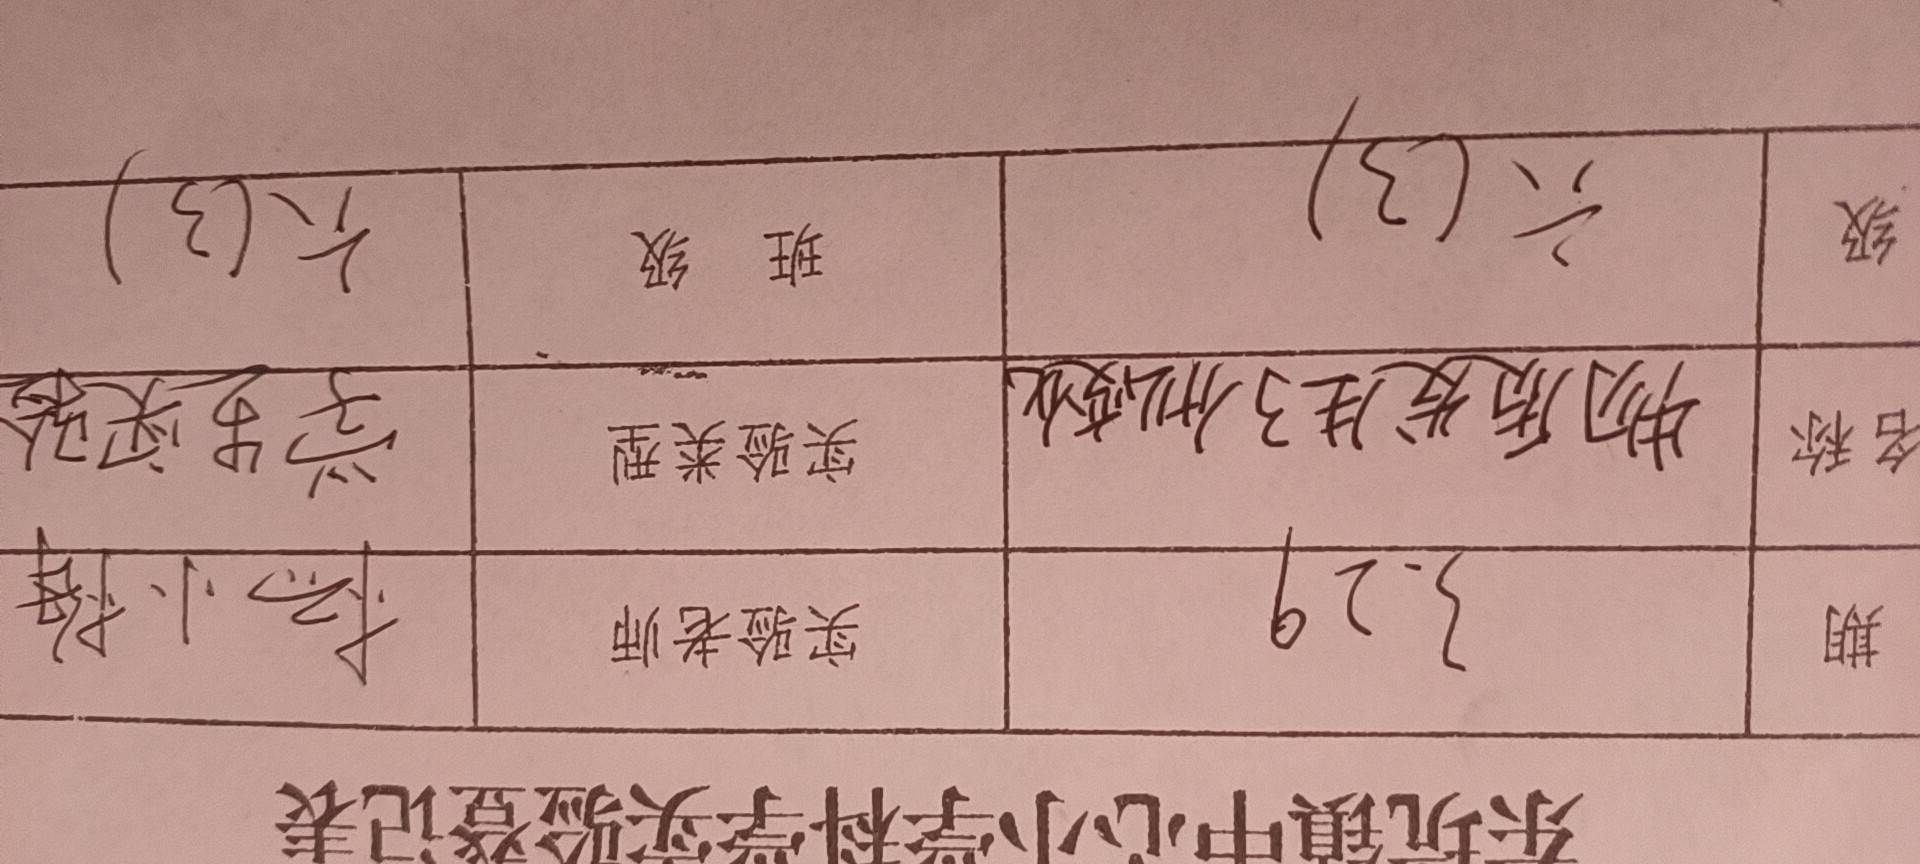 坑镇中心小学科学实验登记表
期 3.29 实验老师 小
名称 物质发生了什么变化 实验类型 学 实验
级 六(3) 班 级 六(3)